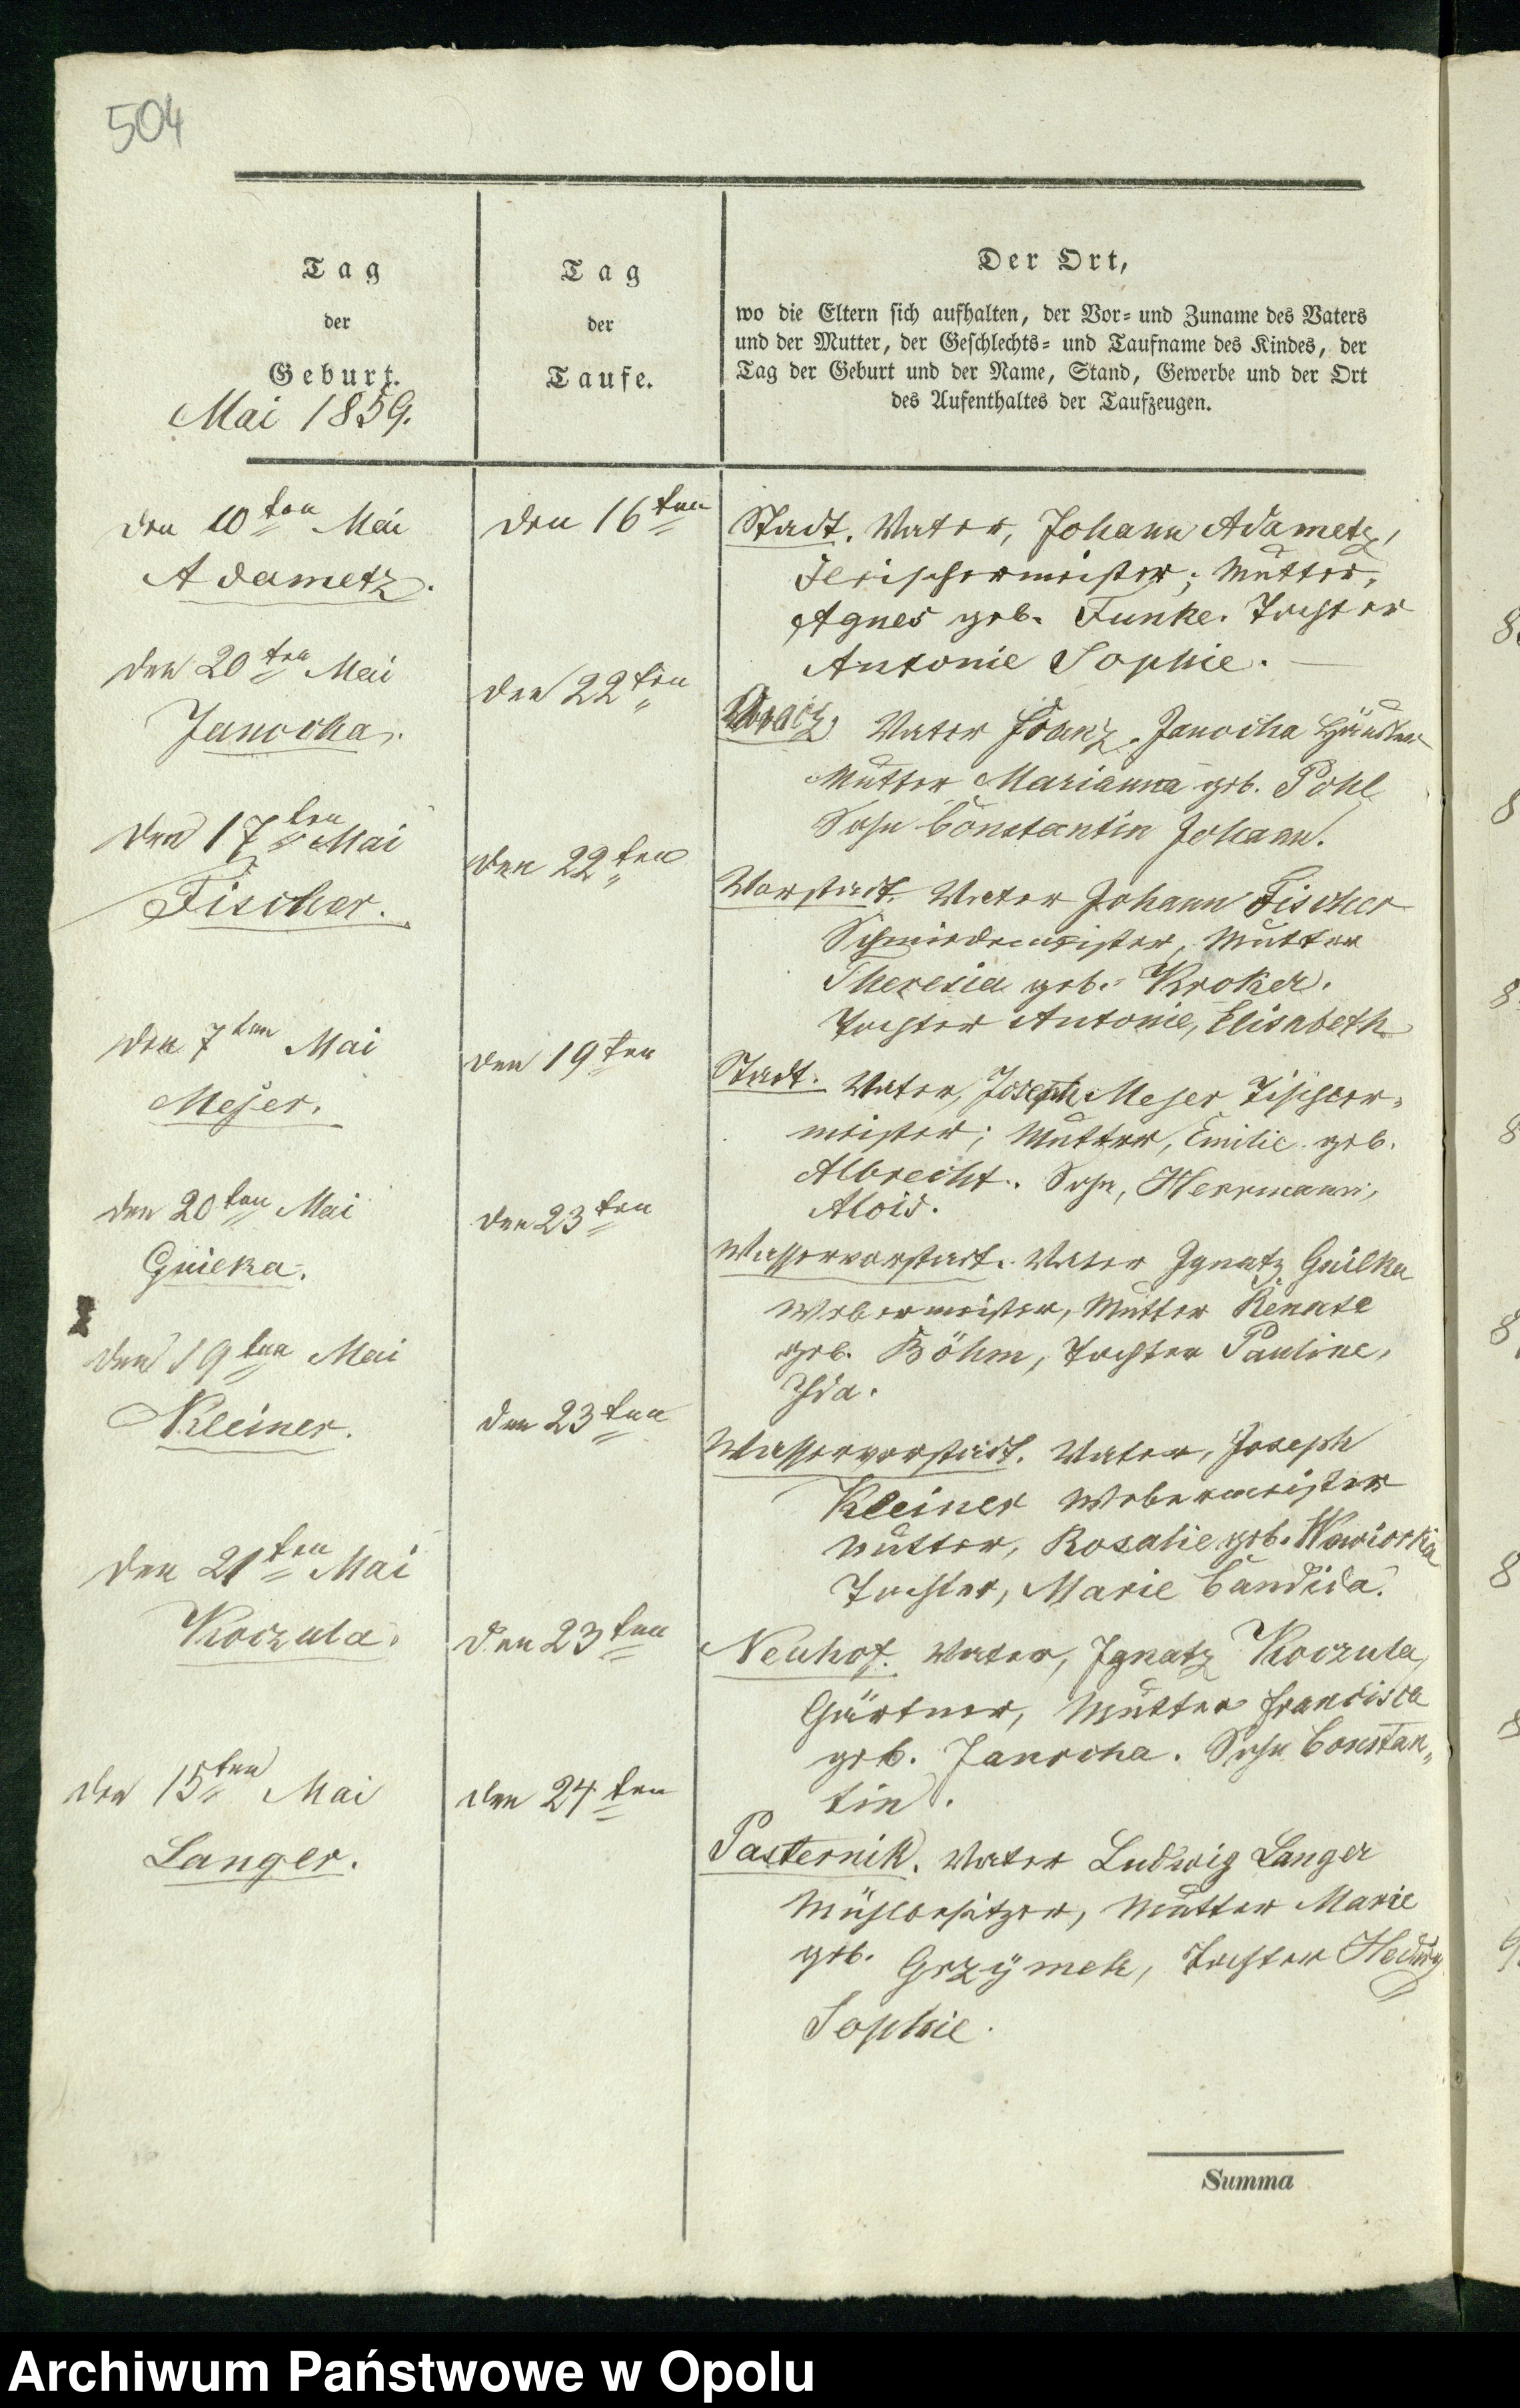 504
Tag
der
Geburt.
Mai 1859.
Tag
der
Taufe.
Der Ort,
wo die Eltern sich aufhalten, der Vor- und Zuname des Vaters
und der Mutter, der Geschlechts- und Taufname des Kindes, der
Tag der Geburt und der Name, Stand, Gewerbe und der Ort
des Aufenthaltes der Taufzeugen.
den 10ten Mai
Adametz.
den 16ten
Stadt. Vater, Johann Adametz,
Fleischermeister; Mutter,
Agnes geb. Funke. Tochter
Antonie Sophie.
den 20ten Mai
Janocha.
den 22ten
Vater Franz Janocha Häusler
Mutter Marianna geb. Pohl
Sohn Constantin Johann.
den 17ten Mai
Fischer.
den 22ten
Vorstadt. Vater Johann Fischer
Schmiedemeister, Mutter
Theresia geb. Kroker.
Tochter Antonie, Elisabeth
den 7ten Mai
Meser.
den 19ten
Stadt. Vater, Joseph Meser Tischler-
meister; Mutter, Emilie geb.
Albrecht. Sohn, Herrmann,
Alois.
den 20ten Mai
Gnilka.
den 23ten
Wasservorstadt. Vater Ignatz Gnilka
Webermeister, Mutter Renate
geb. Böhm, Tochter Pauline,
Ida.
den 19ten Mai
Kleiner.
den 23ten
Wasservorstadt. Vater, Joseph
Kleiner Webermeister
Mutter, Rosalie geb.
Tochter, Marie Candida.
den 21ten Mai
Koczula.
den 23ten
Neuhof. Vater, Ignatz Koczula,
Gärtner, Mutter Francisca
geb. Janocha. Sohn Constan-
tin.
den 15ten Mai
Langer.
den 24ten
Pasternik. Vater Ludwig Langer
Mühlbesitzer, Mutter Marie
geb. Grzÿmek, Tochter Hedwig
Sophie.
Summa
Archiwum Państwowe w Opolu